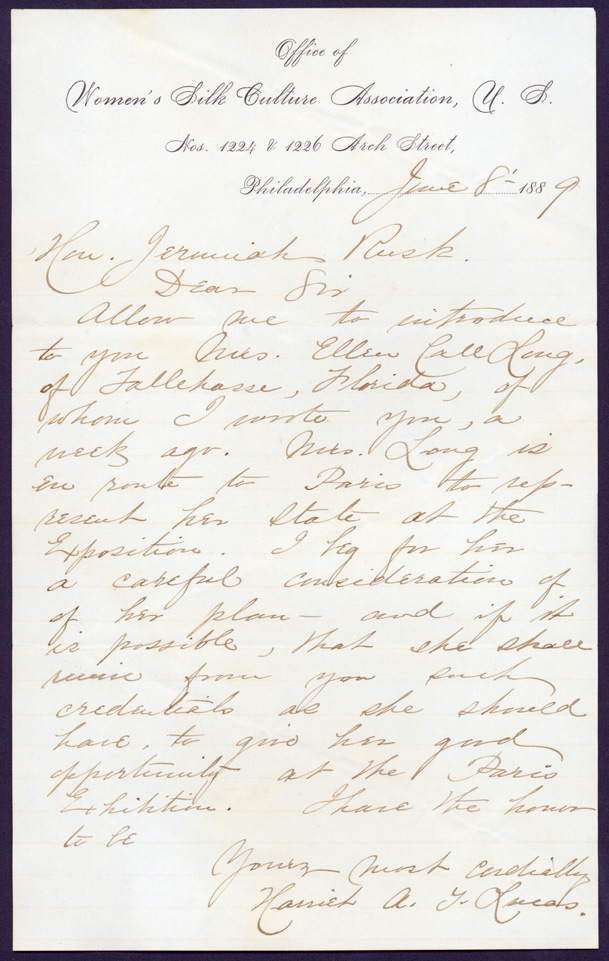 Office of
Women's Silk Culture Association, U. S.
Nos. 1224 & 1226 Arch Street,
Philadelphia, June 8' 1889
Hon. Jeremiah Rusk.
Dear Sir
Allow me to introduce
to you Mrs. Ellen Call Long,
of Tallehasse, Florida, of
whom I wrote you, a
week ago. Mrs. Long is
en route to Paris to rep-
resent her State at the
Exposition. I beg for her
a careful consideration of
of her plan - and if it
is possible, that she shall
receive from you such
credentials as she should
have, to give her good
opportunity at the Paris
Exhibition. I have the honor
to be
Yours most cordially
Harriet A. Lucas.